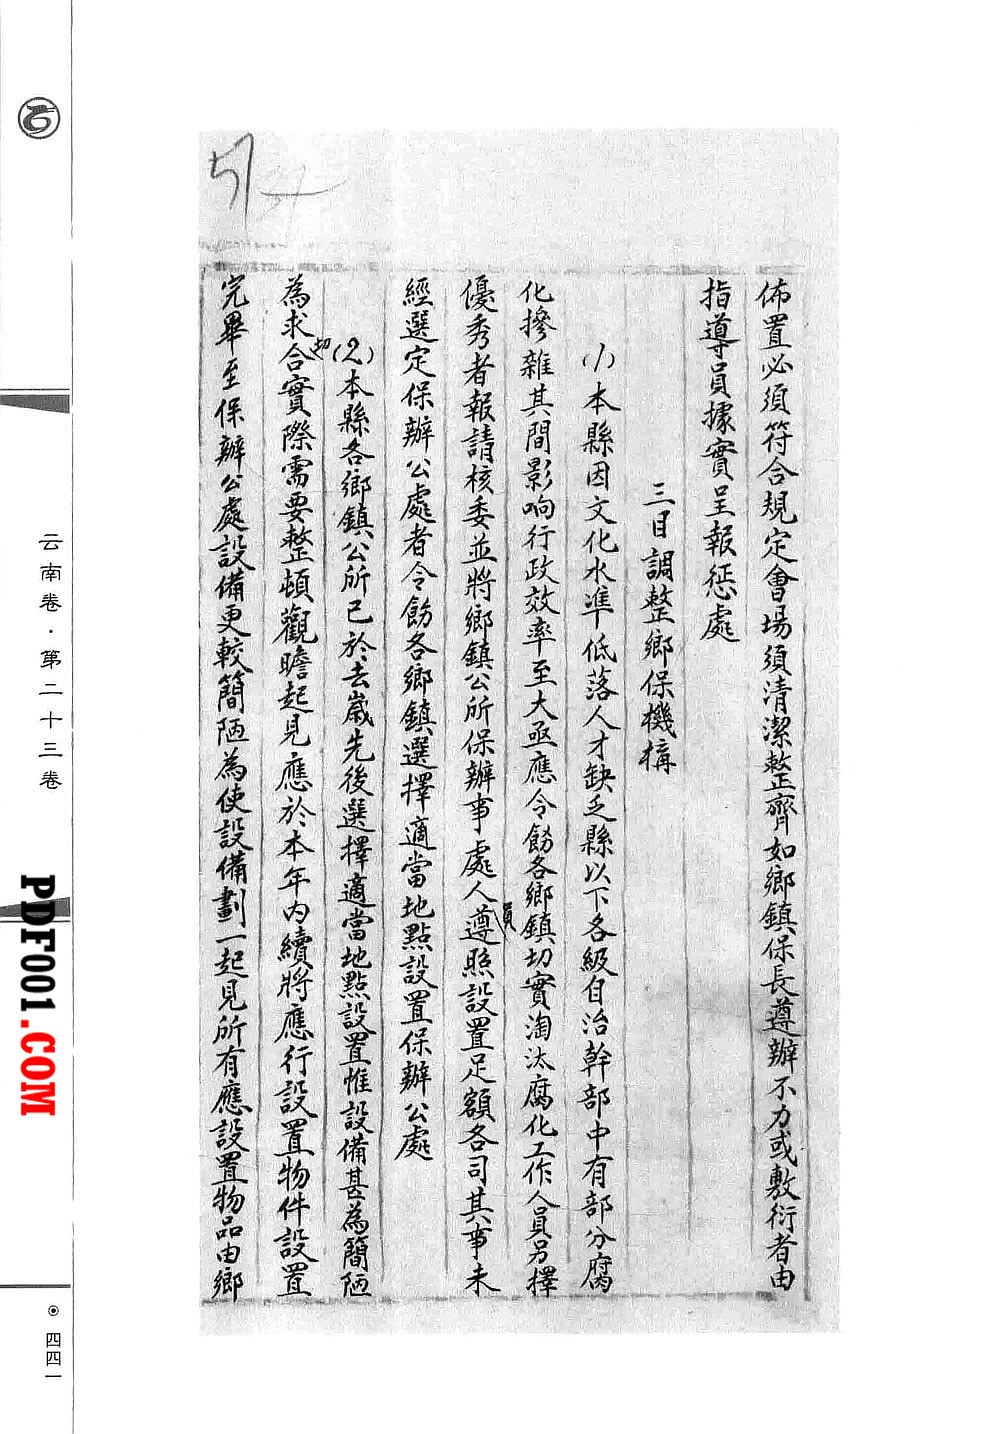 佈置必須符合規定會場須清潔整齊如鄉鎮保長遵辦不力或敷衍者由
指導員據實呈報惩處
三目調整鄉保機構
(1)本縣因文化水準低落人才缺乏縣以下各級自治幹部中有部分腐
化摻雜其間影响行政效率至大亟應令飭各鄉鎮切實淘汰腐化工作人員另擇
優秀者報請核委並將鄉鎮公所保辦事處人員遵照設置足額各司其事未
經選定保辦公處者令飭各鄉鎮選擇適當地點設置保辦公處
(2)本縣各鄉鎮公所已於去歲先後選擇適當地點設置惟設備甚為簡陋
為求切合實際需要整頓觀瞻起見應於本年內續將應行設置物件設置
完畢至保辦公處設備更較簡陋為使設備劃一起見所有應設置物品由鄉
57
云南卷·第二十三卷
PDF001.COM
四四一